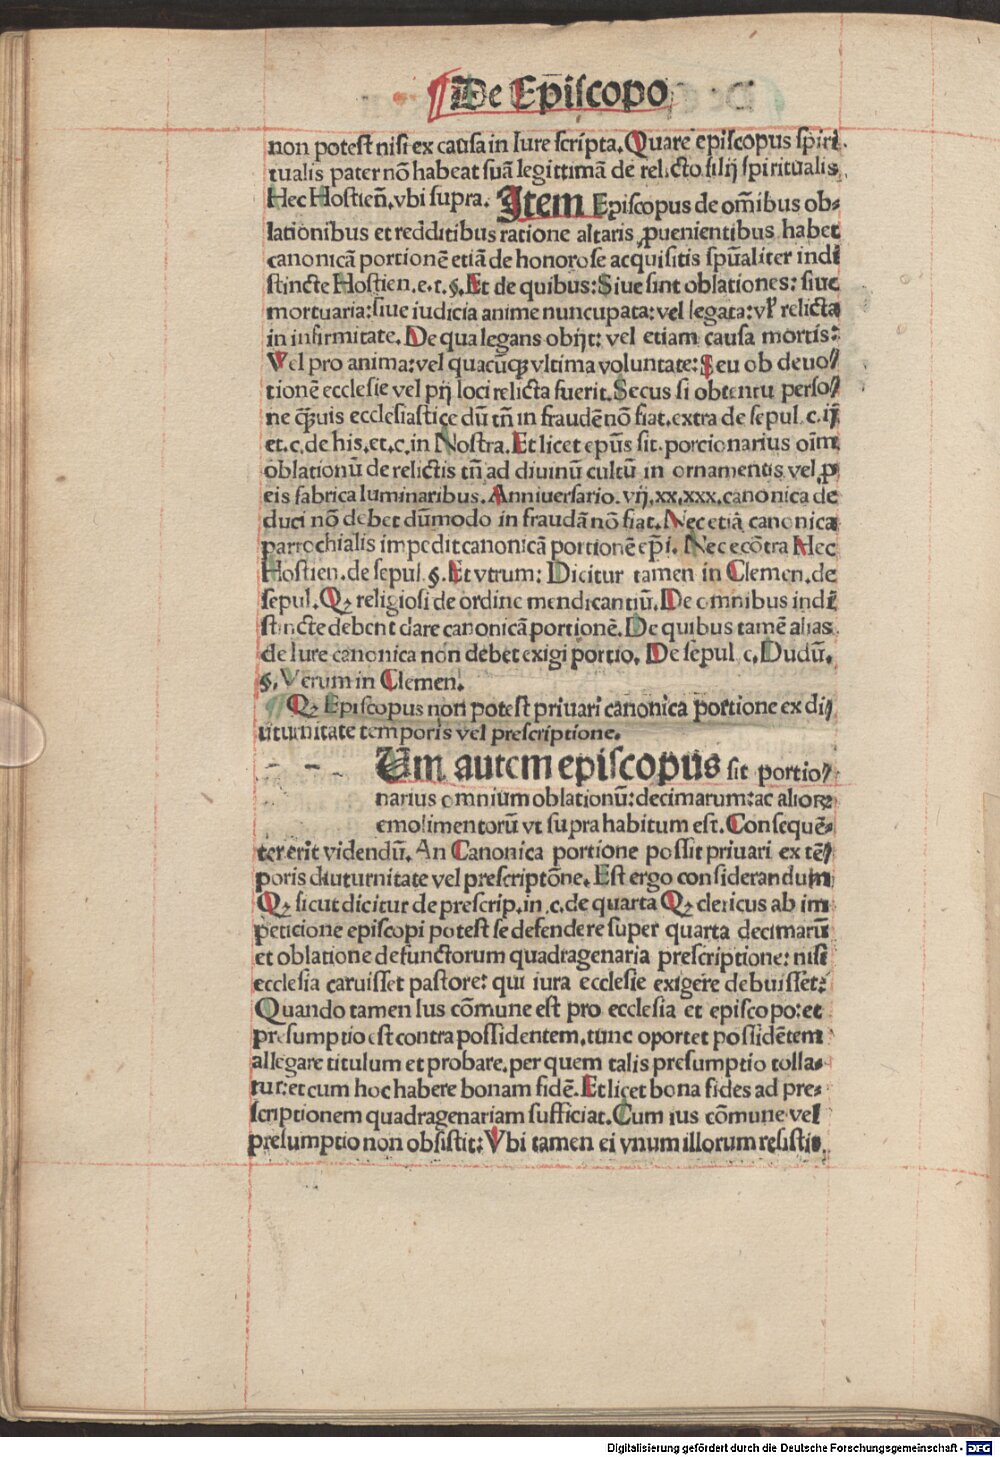 ¶De Ep̄iscopo
non potest nisi ex causa in Iure scripta. Quare episcopus spiri
tualis pater nō habeat suā legittimā de relicto filij spiritualis
Hec Hostien̄. vbi supra. Item Episcopus de om̄ibus ob⸗
lationibus et redditibus ratione altaris ꝓuenientibus habet
canonicā portionē etiā de honorose acquisitis spūaliter indi
stincte Hostien. e. t. §. Et de quibus: Siue sint oblationes: siue
mortuaria: siue iudicia anime nuncupata: vel legata: vl̓ relicta
in infirmitate. De qua legans obijt: vel etiam causa mortis:
Vel pro anima: vel quacūqꝫ vltima voluntate: Seu ob deuo⸗
tionē ecclesie vel pij loci relicta fuerit. Secus si obtentu perso⸗
ne qͣꝫuis ecclesiastice dū tn̄ in fraudē nō fiat. extra de sepul. c. ij
et. c. de his. et. c. in Nostra. Et licet ep̄us sit. porcionarius oīm
oblationū de relictis tn̄ ad diuinū cultū in ornamentis vel ꝓ
eis fabrica luminaribus. Anniuersario. vij. xx. xxx. canonica de
duci nō debet dūmodo in fraudā nō fiat. Nec etiā canonica
parrochialis impedit canonicā portionē ep̄i. Nec ecōtra Hec
Hostien. de sepul. §. Et vtrum: Dicitur tamen in Clemen. de
sepul. Qꝫ religiosi de ordine mendicantiū. De omnibus indi
stincte debent dare canonicā portionē. De quibus tamē alias
de Iure canonica non debet exigi portio. De sepul. c. Dudū.
§. Verum in Clemen.
¶ Qꝫ Episcopus non potest priuari canonica portione ex di⸗
uturnitate temporis vel prescriptione.
Um autem episcopus sit portio⸗
narius omnium oblationū: decimarum: ac alioꝝ
emolimentorū vt supra habitum est. Consequē⸗
ter erit videndū. An Canonica portione possit priuari ex tē⸗
poris diuturnitate vel prescriptōne. Est ergo considerandum
Qꝫ sicut dicitur de prescrip. in. c. de quarta Qꝫ clericus ab im
peticione episcopi potest se defendere super quarta decimarū
et oblatione defunctorum quadragenaria prescriptione: nisi
ecclesia caruisset pastore: qui iura ecclesie exigere debuisset:
Quando tamen Ius cōmune est pro ecclesia et episcopo: et
presumptio est contra possidentem. tunc oportet possidētem
allegare titulum et probare. per quem talis presumptio tolla⸗
tur: et cum hoc habere bonam fidē. Et licet bona fides ad pre⸗
scriptionem quadragenariam sufficiat. Cum ius cōmune vel
presumptio non obsistit: Vbi tamen ei vnum illorum resistit.
Digitalisierung gefördert durch die Deutsche Forschungsgemeinschaft - DFG